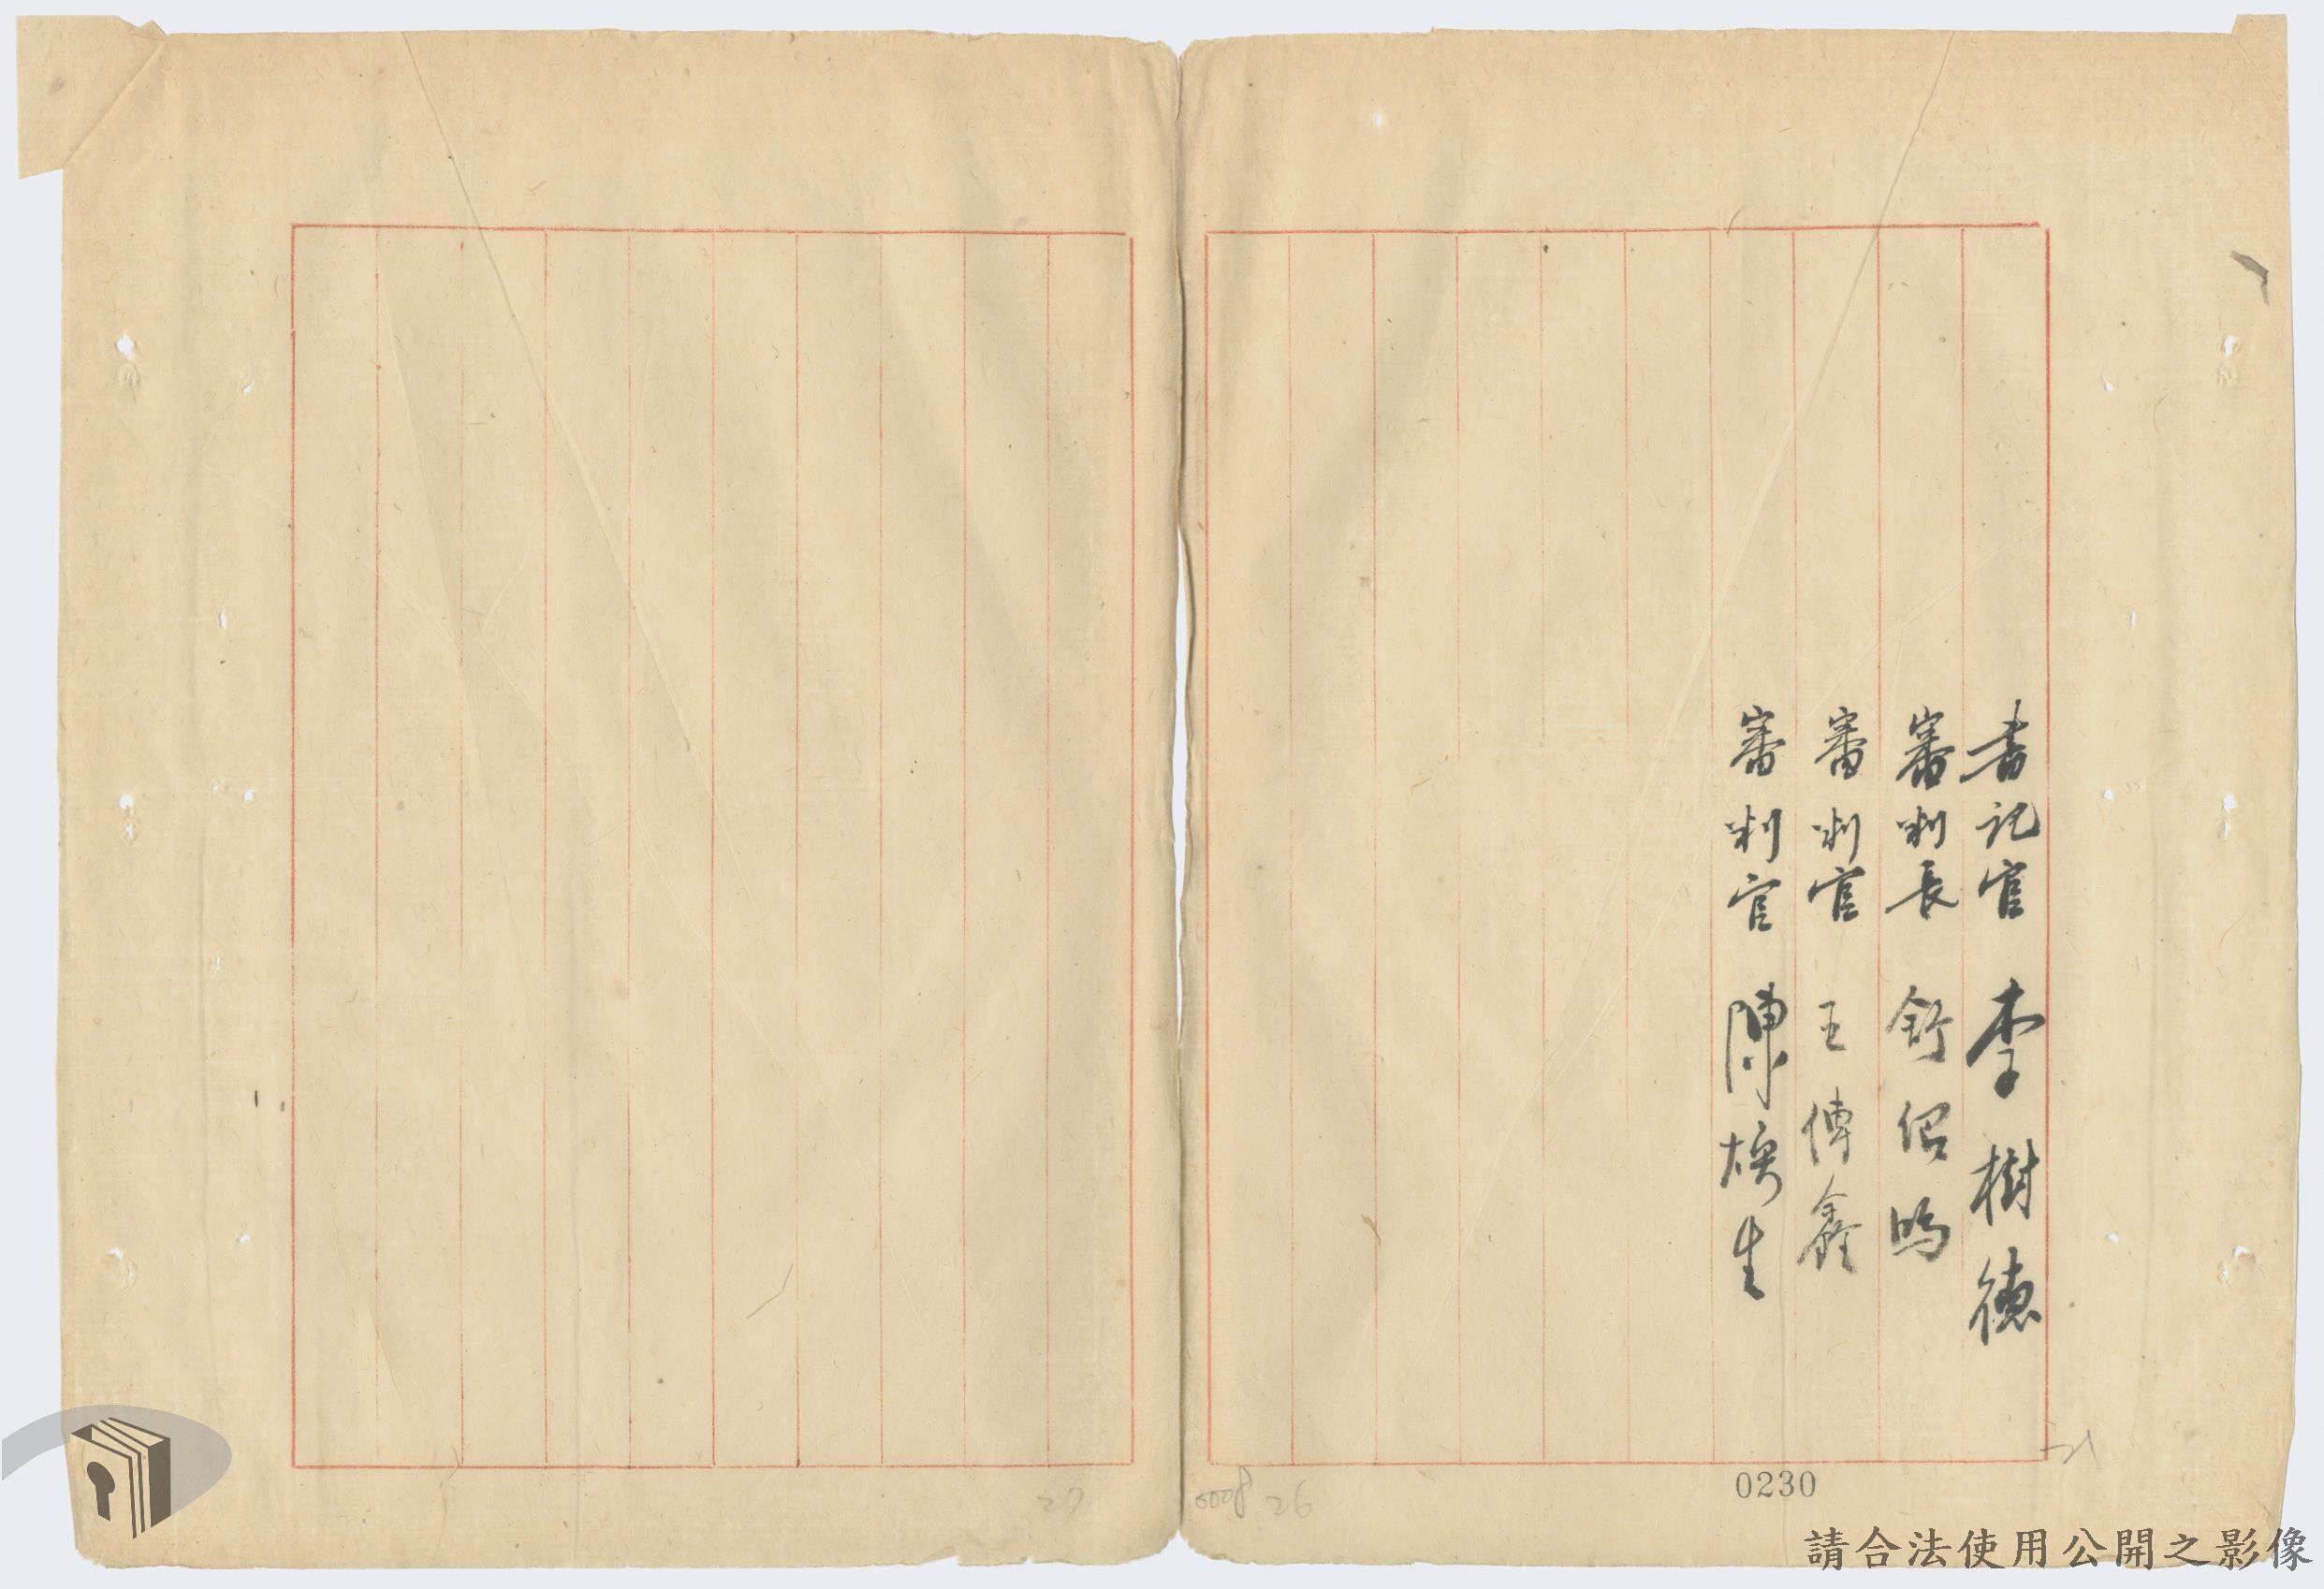 書記官 李樹德
審判長 舒紹鴻
審判官 王傳鑫
審判官 陳煥生
0230
0008 26
27
請合法使用公開之影像